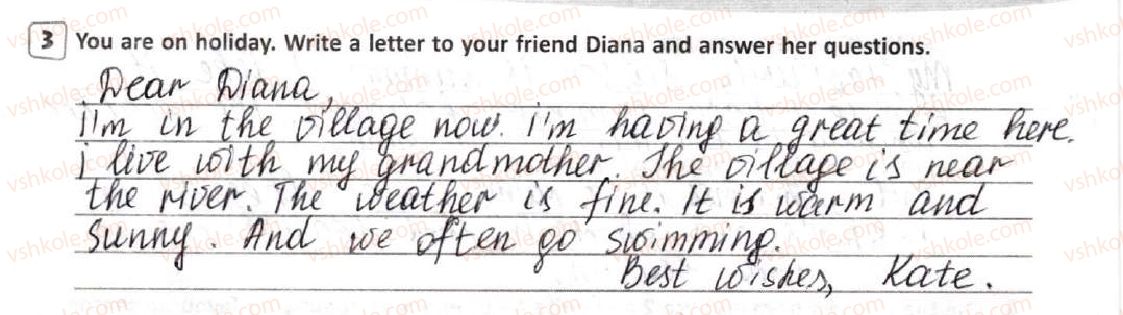 3 You are on holiday. Write a letter to your friend Diana and answer her questions.
Dear Diana,
I'm in the village now. I'm having a great time here.
I live with my grandmother. The village is near
the river. The weather is fine. It is warm and
sunny. And we often go swimming.
Best wishes, Kate.